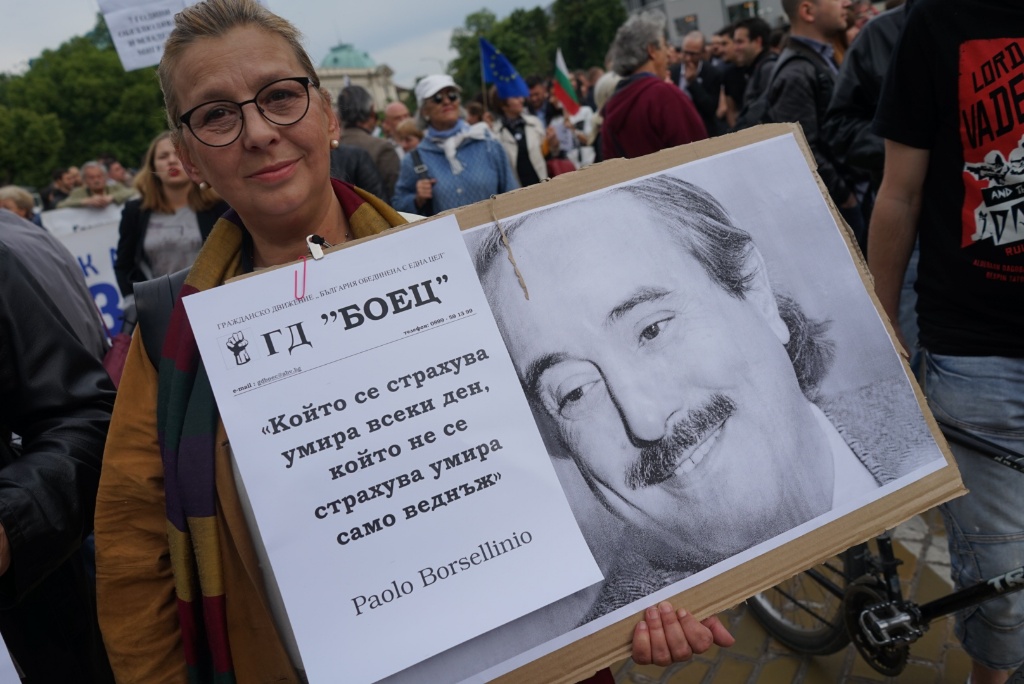 ГРАЖДАНСКО ДВИЖЕНИЕ „ БЪЛГАРИЯ ОБЕДИНЕНА С ЕДНА ЦЕЛ"
ГД ”БОЕЦ”
телефон: 0889 - 58 13 00
e-mail : gdboec@abv.bg
«Който се страхува
умира всеки ден,
който не се
страхува умира
само веднъж»
Paolo Borsellinio
LORD
VADE
AND